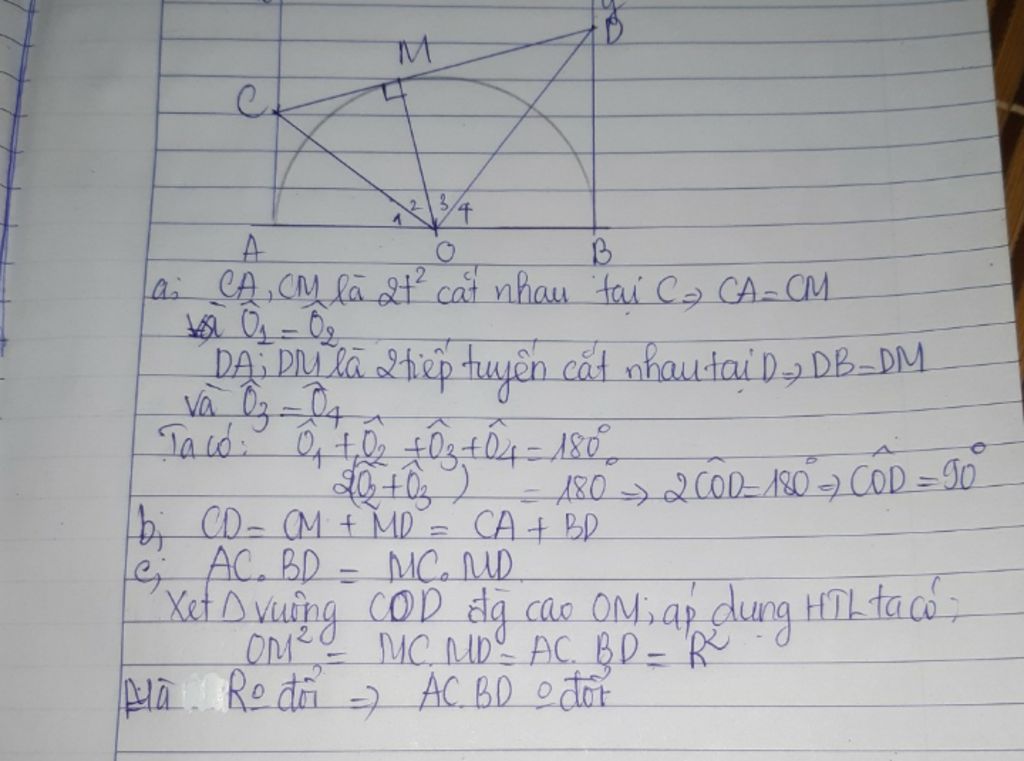 y
D
M
C
1 2 3 4
A O B
a; CA, CM là 2t² cắt nhau tại C => CA = CM
và Ô1 = Ô2
DA; DM là 2 tiếp tuyến cắt nhau tại D => DB = DM
và Ô3 = Ô4
Ta có: Ô1 + Ô2 + Ô3 + Ô4 = 180°
2(Ô2 + Ô3) = 180° => 2CÔD = 180° => CÔD = 90°
b; CD = CM + MD = CA + BD
c; AC. BD = MC. MD
Xét Δ vuông COD đg cao OM; áp dụng HTL ta có;
OM² = MC. MD = AC. BD = R²
Mà R o đổi => AC. BD o đổi